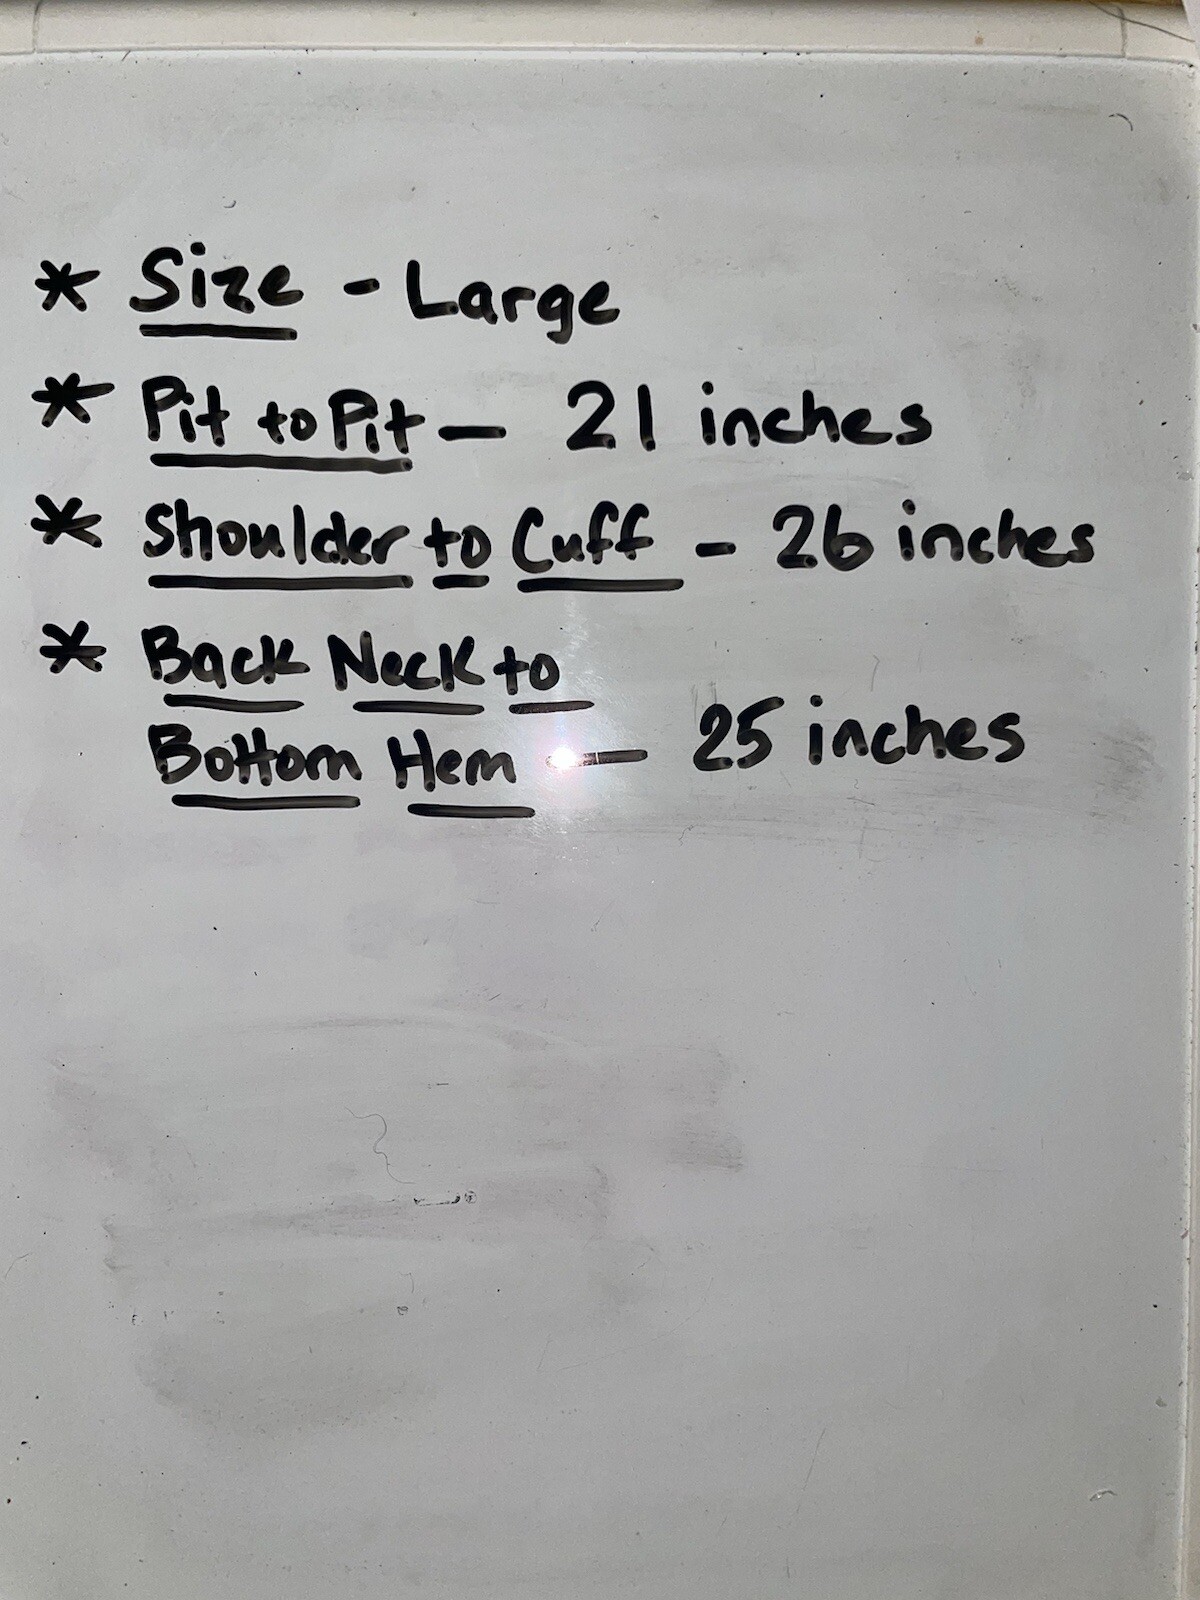 * Size - Large
* Pit to Pit - 21 inches
* Shoulder to Cuff - 26 inches
* Back Neck to
Bottom Hem - 25 inches